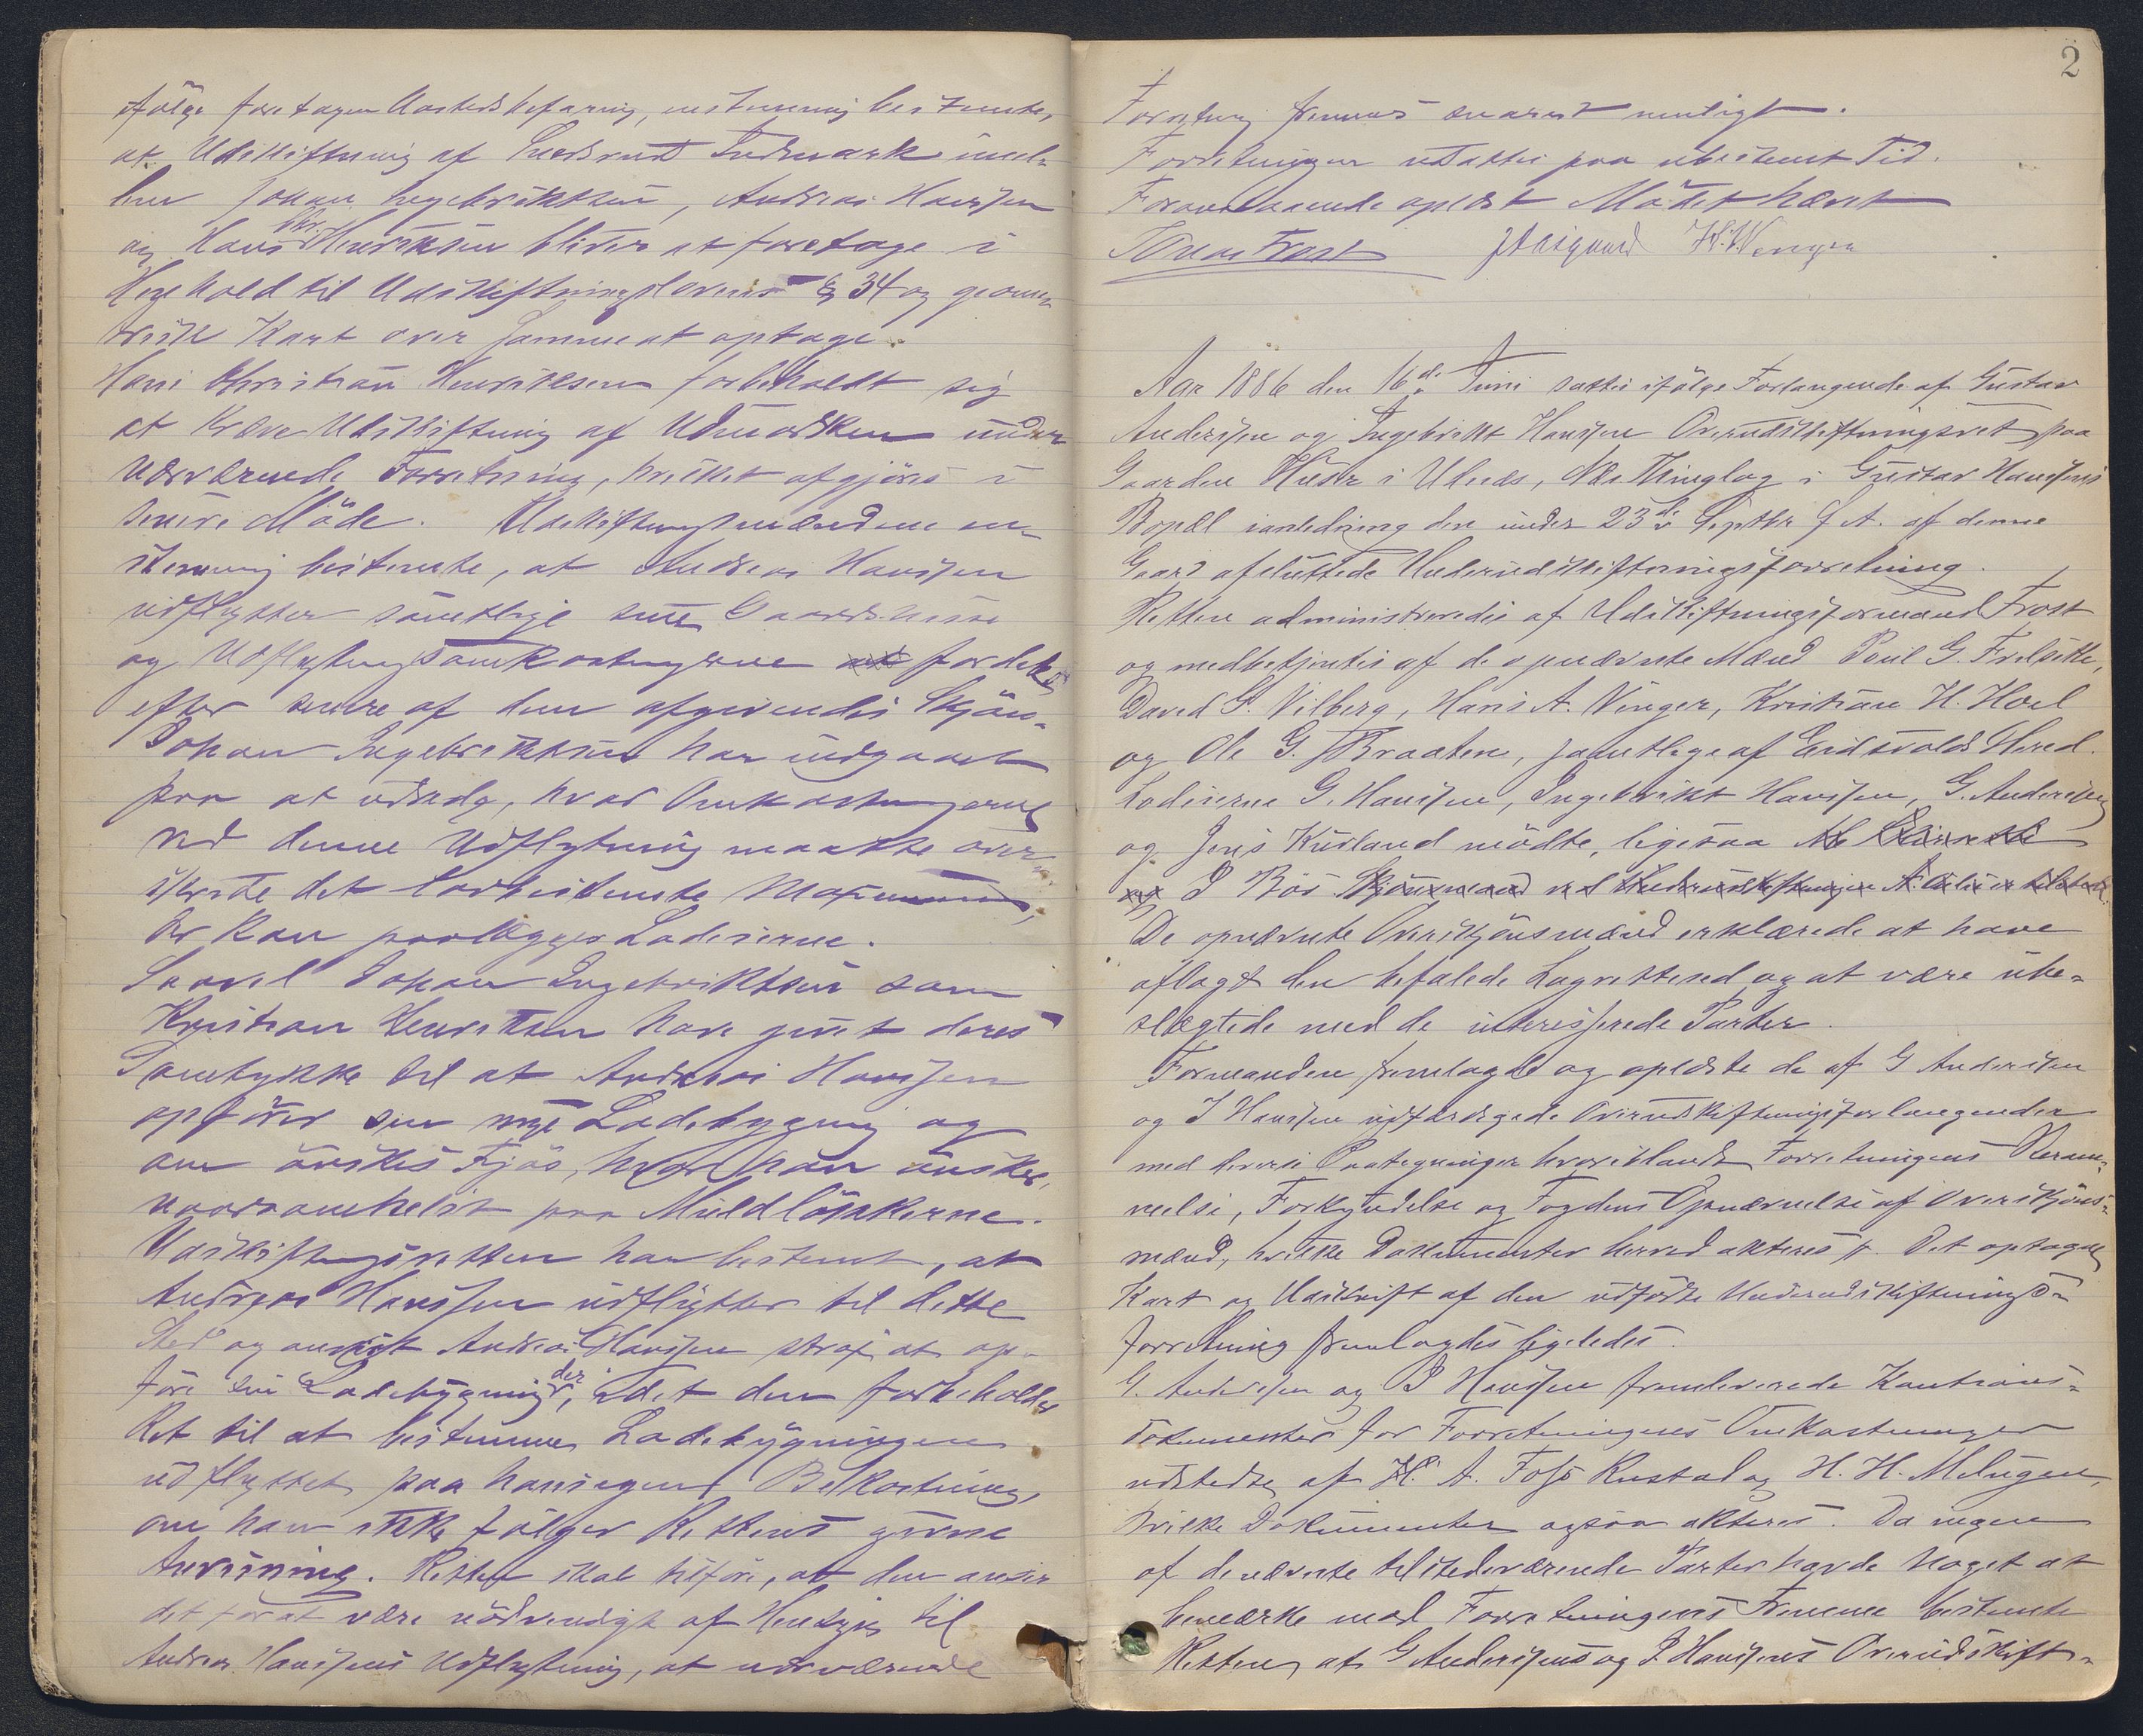 ifølge foretagen Aastedsbefaring, enstemmig bestemte,
at Udskiftning af Indmark imel-
lem Johan Ingebriktsen, Andreas Hanssen
og Hans Chr. Henriksen bliver at foretage i
Henhold til Udskiftningslovens § 34 og geome-
trisk Kart over samme at optage.
Hans Christian Henriksen forbeholdt sig
at kræve Udskiftning af Udmarken under
nærværende Forretning, hvilket afgjøres i
senere Møde. Udskiftningsmændene en-
stemmig bestemte, at Andreas Hanssen
udflytter samtlige sine Gaardshuse
og Udflytningsomkostningerne fordeles
efter senere af dem afgivendes Skjøn.
Johan Ingebriktsen har indgaaet
paa at udrede, hvad Omkostningerne
ved denne Udflytning maatte over-
stige det lovbestemte Maximum,
der kan paalægges Lodeierne.
Saavel Johan Ingebriktsen som
Kristian Henriksen have givet deres
Samtykke til at Andreas Hanssen
opfører sin nye Ladebygning og
om ønskes Fjøs, hvor han ønsker,
hvorsomhelst paa Muldløkkerne.
Udskiftningsretten har bestemt, at
Andreas Hanssen udflytter til dette
Sted og Andreas Hanssen strax at op-
føre sin Ladebygning der, idet den forbeholder
Ret til at bestemme Ladebygningen
udflyttet paa hans egen Bekostning,
om han ikke følger Rettens givne
Anvisning. Retten skal tilføre, at den anser
det for at være nødvendigt af Hensyn til
Andreas Hanssens Udflytning, at nærværende
2
Forretning fremmes snarest muligt.
Forretningen udsattes paa ubestemt Tid.
Foranstaaende oplæst Mødet hævet
Frost
Aar 1886 den 16de Juni sattes ifølge Forlangende af Gustav
Andersen og Ingebrikt Hanssen Overudskiftningsret paa
Gaarden i Ulnæs, Næs Thinglag i Gustav Hanssens
Bopæl i anledning den under 23de Septbr f. A. af denne
Gaard afsluttede Underudskiftningsforretning.
Retten administreredes af Udskiftningsformand Frost
og medbetjentes af de opnævnte Mænd Poul G. Frilsette,
David S. Vilberg, Hans A. Vinger, Kristian H. Hoel
og Ole G. Braaten, samtlige af Eidsvolds Hered.
Lodeierne G. Hanssen, Ingebrikt Hanssen, G. Andersen
og Jens Kurland mødte, ligesaa
De opnævnte Overskjønsmænd erklærede at have
aflagt den befalede Lagrettesed og at være ube-
slægtede med de interesserede Parter.
Formanden fremlagde og oplæste de af G Andersen
og I Hanssen udfærdigede Overudskiftningsforlangender
med deres Paategninger hvoriblandt Forretningens Beram-
melse, Forkyndelse og Fogdens Opnævnelse af Overskjøns-
mænd, hvilke Dokumenter herved akteres. Det optagne
Kart og Udskrift af den udførte Underudskiftnings-
forretning fremlagdes ligeledes.
G. Andersen og I Hanssen fremleverede Kautions-
dokumenter for Forretningens Omkostninger
udstedte af H. A. Foss Rustad og H. H. Melingen,
hvilke Dokumenter ogsaa akteres. Da ingen
af de nævnte tilstedeværende Parter havde noget at
bemærke mod Forretningens Fremme bestemte
Retten, at G Andersens og I Hanssens Overudskift-